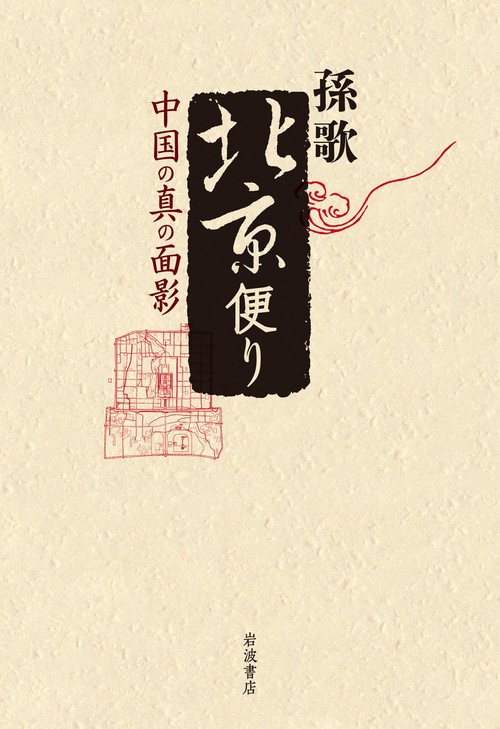 孫歌
北京便り
中国の真の面影
岩波書店